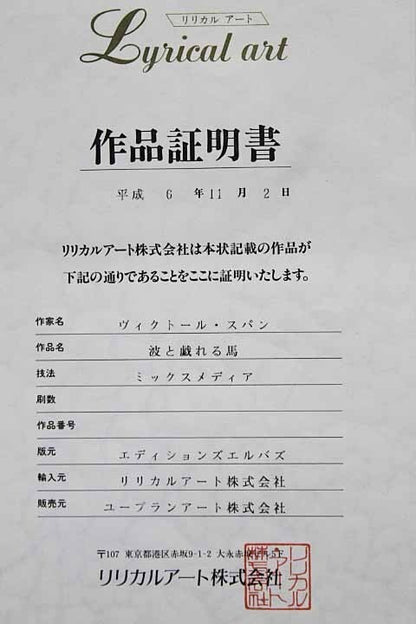 リリカル アート
Lyrical art
作品証明書
平成 6 年 11 月 2 日
リリカルアート株式会社は本状記載の作品が
下記の通りであることをここに証明いたします。
作家名 ヴィクトール・スパン
作品名 波と戯れる馬
技法 ミックスメディア
刷数
作品番号
版元 エディションズエルバズ
輸入元 リリカルアート株式会社
販売元 ユープランアート株式会社
〒107 東京都港区赤坂9-1-2 大永赤坂 5F
リリカルアート株式会社
リリカルアート株式会社